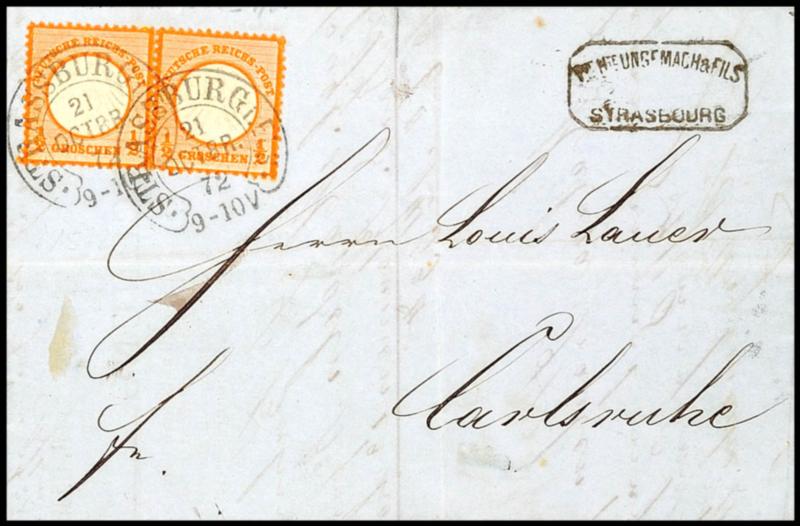 DEUTSCHE REICHS-POST
1/2 GROSCHEN 1/2
DEUTSCHE REICHS-POST
1/2 GROSCHEN 1/2
STRASSBURG
21
OCTBR
9-1
STRASSBURG
21
OCTBR.
72
9-10V
UNGEMACH & FILS
STRASBOURG
Herrn Louis Lauer
Carlsruhe
fr.